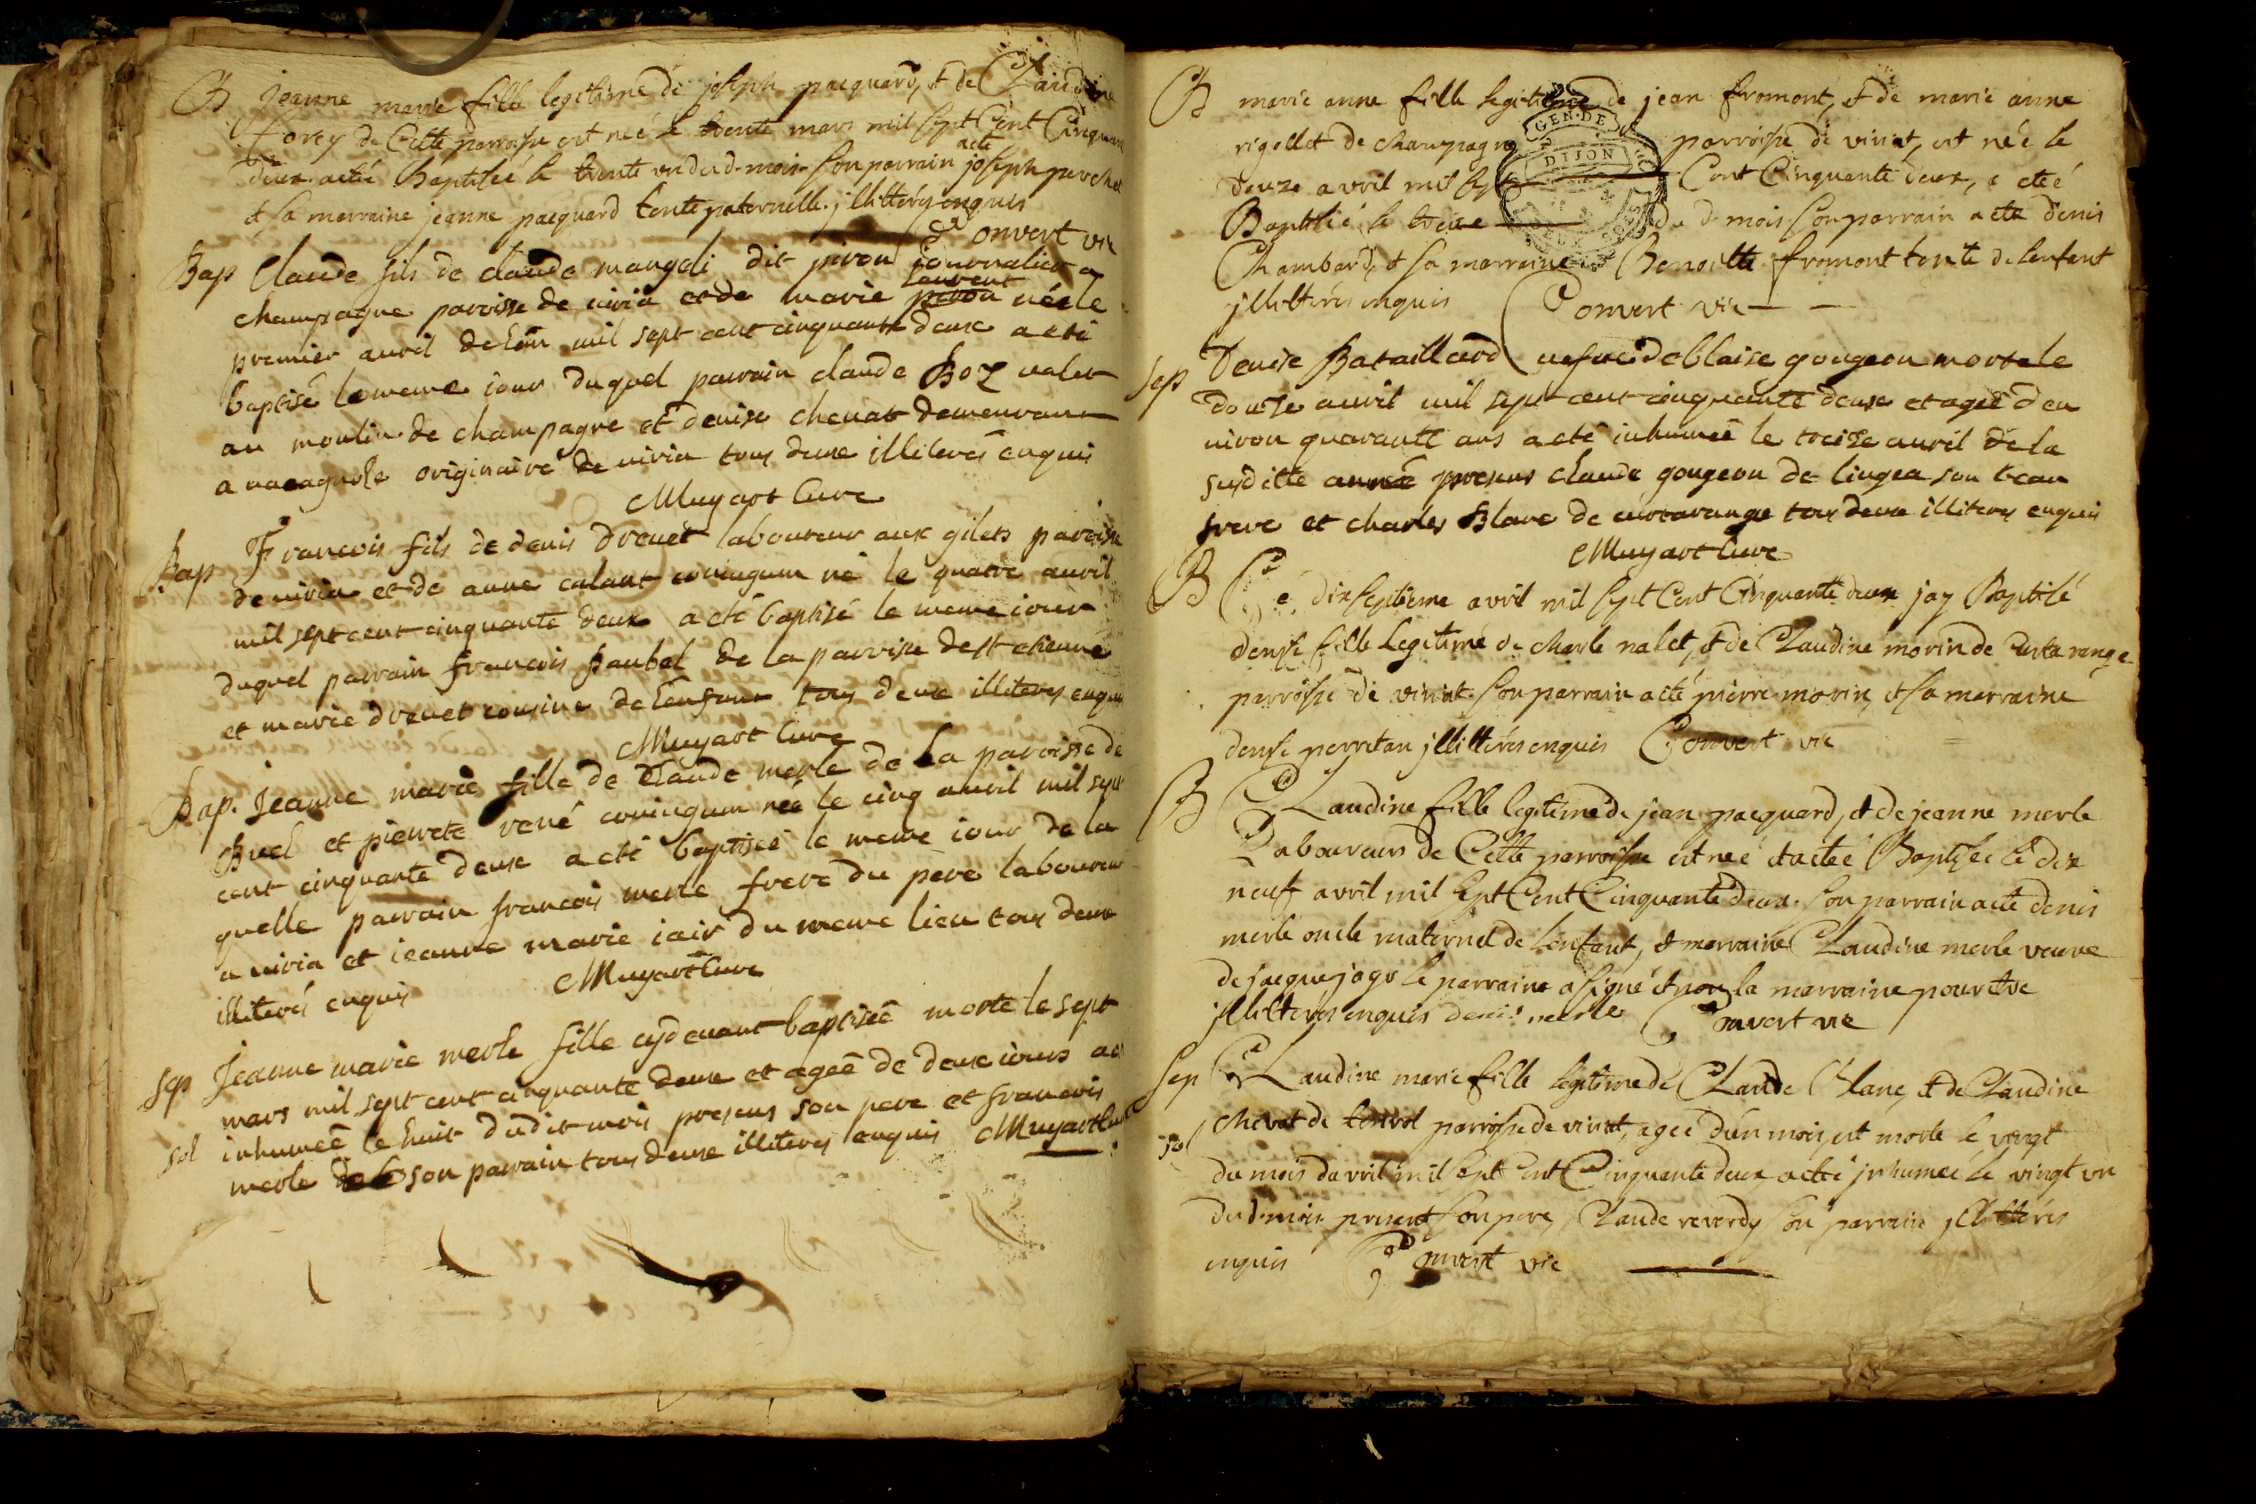 B jeanne marie fille legitime de joseph pacquard, et de Claudine
forey de Cette parroisse est neé le trente mars mil sept Cent Cinquante
deux. a eté Baptiseé le trente un dud. mois. son parrain acté joseph perchet
et sa marraine jeanne pacquard tente paternelle. jllitterés enquis
Convert vic
Bap Claude fils de claude mangeli dit piron journalier a
champagne paroisse de viria et de marie piron laurent né le
premier auril de l'an mil sept cent cinquante deux a eté
baptisé le meme iour duquel parrain claude Boz valet
au moulin de champagne et denise chevat demeurant
a originaire de viria tous deux illiterés enquis
Muyart Cure
Bap Francois fils de denis drevet laboureur aux gilets paroisse
de viria et de anne calant coniugum né le quatre auril
mil sept cent cinquante deux a eté baptisé le meme iour
duquel parrain francois paubel de la parroise de st etienne
et marie drevet cousine de l'enfant tous deux illiteres enquis
Muyart Cure
Bap. Jeanne marie fille de Claude merle de la paroisse de
Buel et pierrete rené coniugum née le cinq auril mil sept
cent cinquante deux a eté baptiseé le meme iour de la
quelle parrain francois merle frere du pere laboureur
a viria et ieanne marie iair du meme lieu tous deux
illiterés enquis Muyart Cure
Sep Jeanne marie merle fille cydevant baptiseé morte le sept
mars mil sept cent cinquante deux et ageé de deux iours a eté
sol inhumeé le huit dudit mois presens son pere et francois
merle son parrain tous deux illiteres enquis Muyart Cure
B marie anne fille legitime de jean fromont, et de marie anne
rigollet de champagne parroisse de viriat, est neé le
douze avril mil sept Cent Cinquante deux, a eteé
Baptiseé le treize du d. mois. son parrain a eté denis
Chambard, et sa marraine Benoitte fromont tente de lenfant
jllitterés enquis Convert vic
GEN. DE
DIJON
DEUX SOLS
Sep Denise Bataillard vefve de blaise gougeon morte le
douze auril mil sept cent cinquante deux et ageé d'en
viron quarante ans a eté inhumeé le treize auril de la
susditte anneé presens claude gougeon de lingea son beau
frere et charles Blanc de curtarange tous deux illiteres enquis
Muyart Cure
B Ce dixseptieme avril mil sept Cent Cinquante deux jay Baptisé
denise fille legitime de charle nalet, et de Claudine morin de Curtarange
parroisse de viriat. son parrain a eté pierre morin, et sa marraine
denise perretan jllitterés enquis Convert vic
B Claudine fille legitime de jean pacquard, et de jeanne merle
Laboureurs de Cette parroisse est neé et a eteé Baptiseé le dix
neuf avril mil sept Cent Cinquante deux. son parrain a eté denis
merle oncle maternel de lenfant, et marraine Claudine merle veuve
de jacque jayr le parrain a signé et non la marraine pour etre
jllitteres enquis denis merle Convert vic
Sep Claudine marie fille legitime de Claude Blanc, et de Claudine
chevat de parroisse de viriat, ageé d'un mois, est morte le vingt
sol du mois davril mil sept Cent Cinquante deux a eté jnhumeé le vingt un
dud. mois present son pere, Claude reverdy son parrain jllitterés
enquis Convert vic